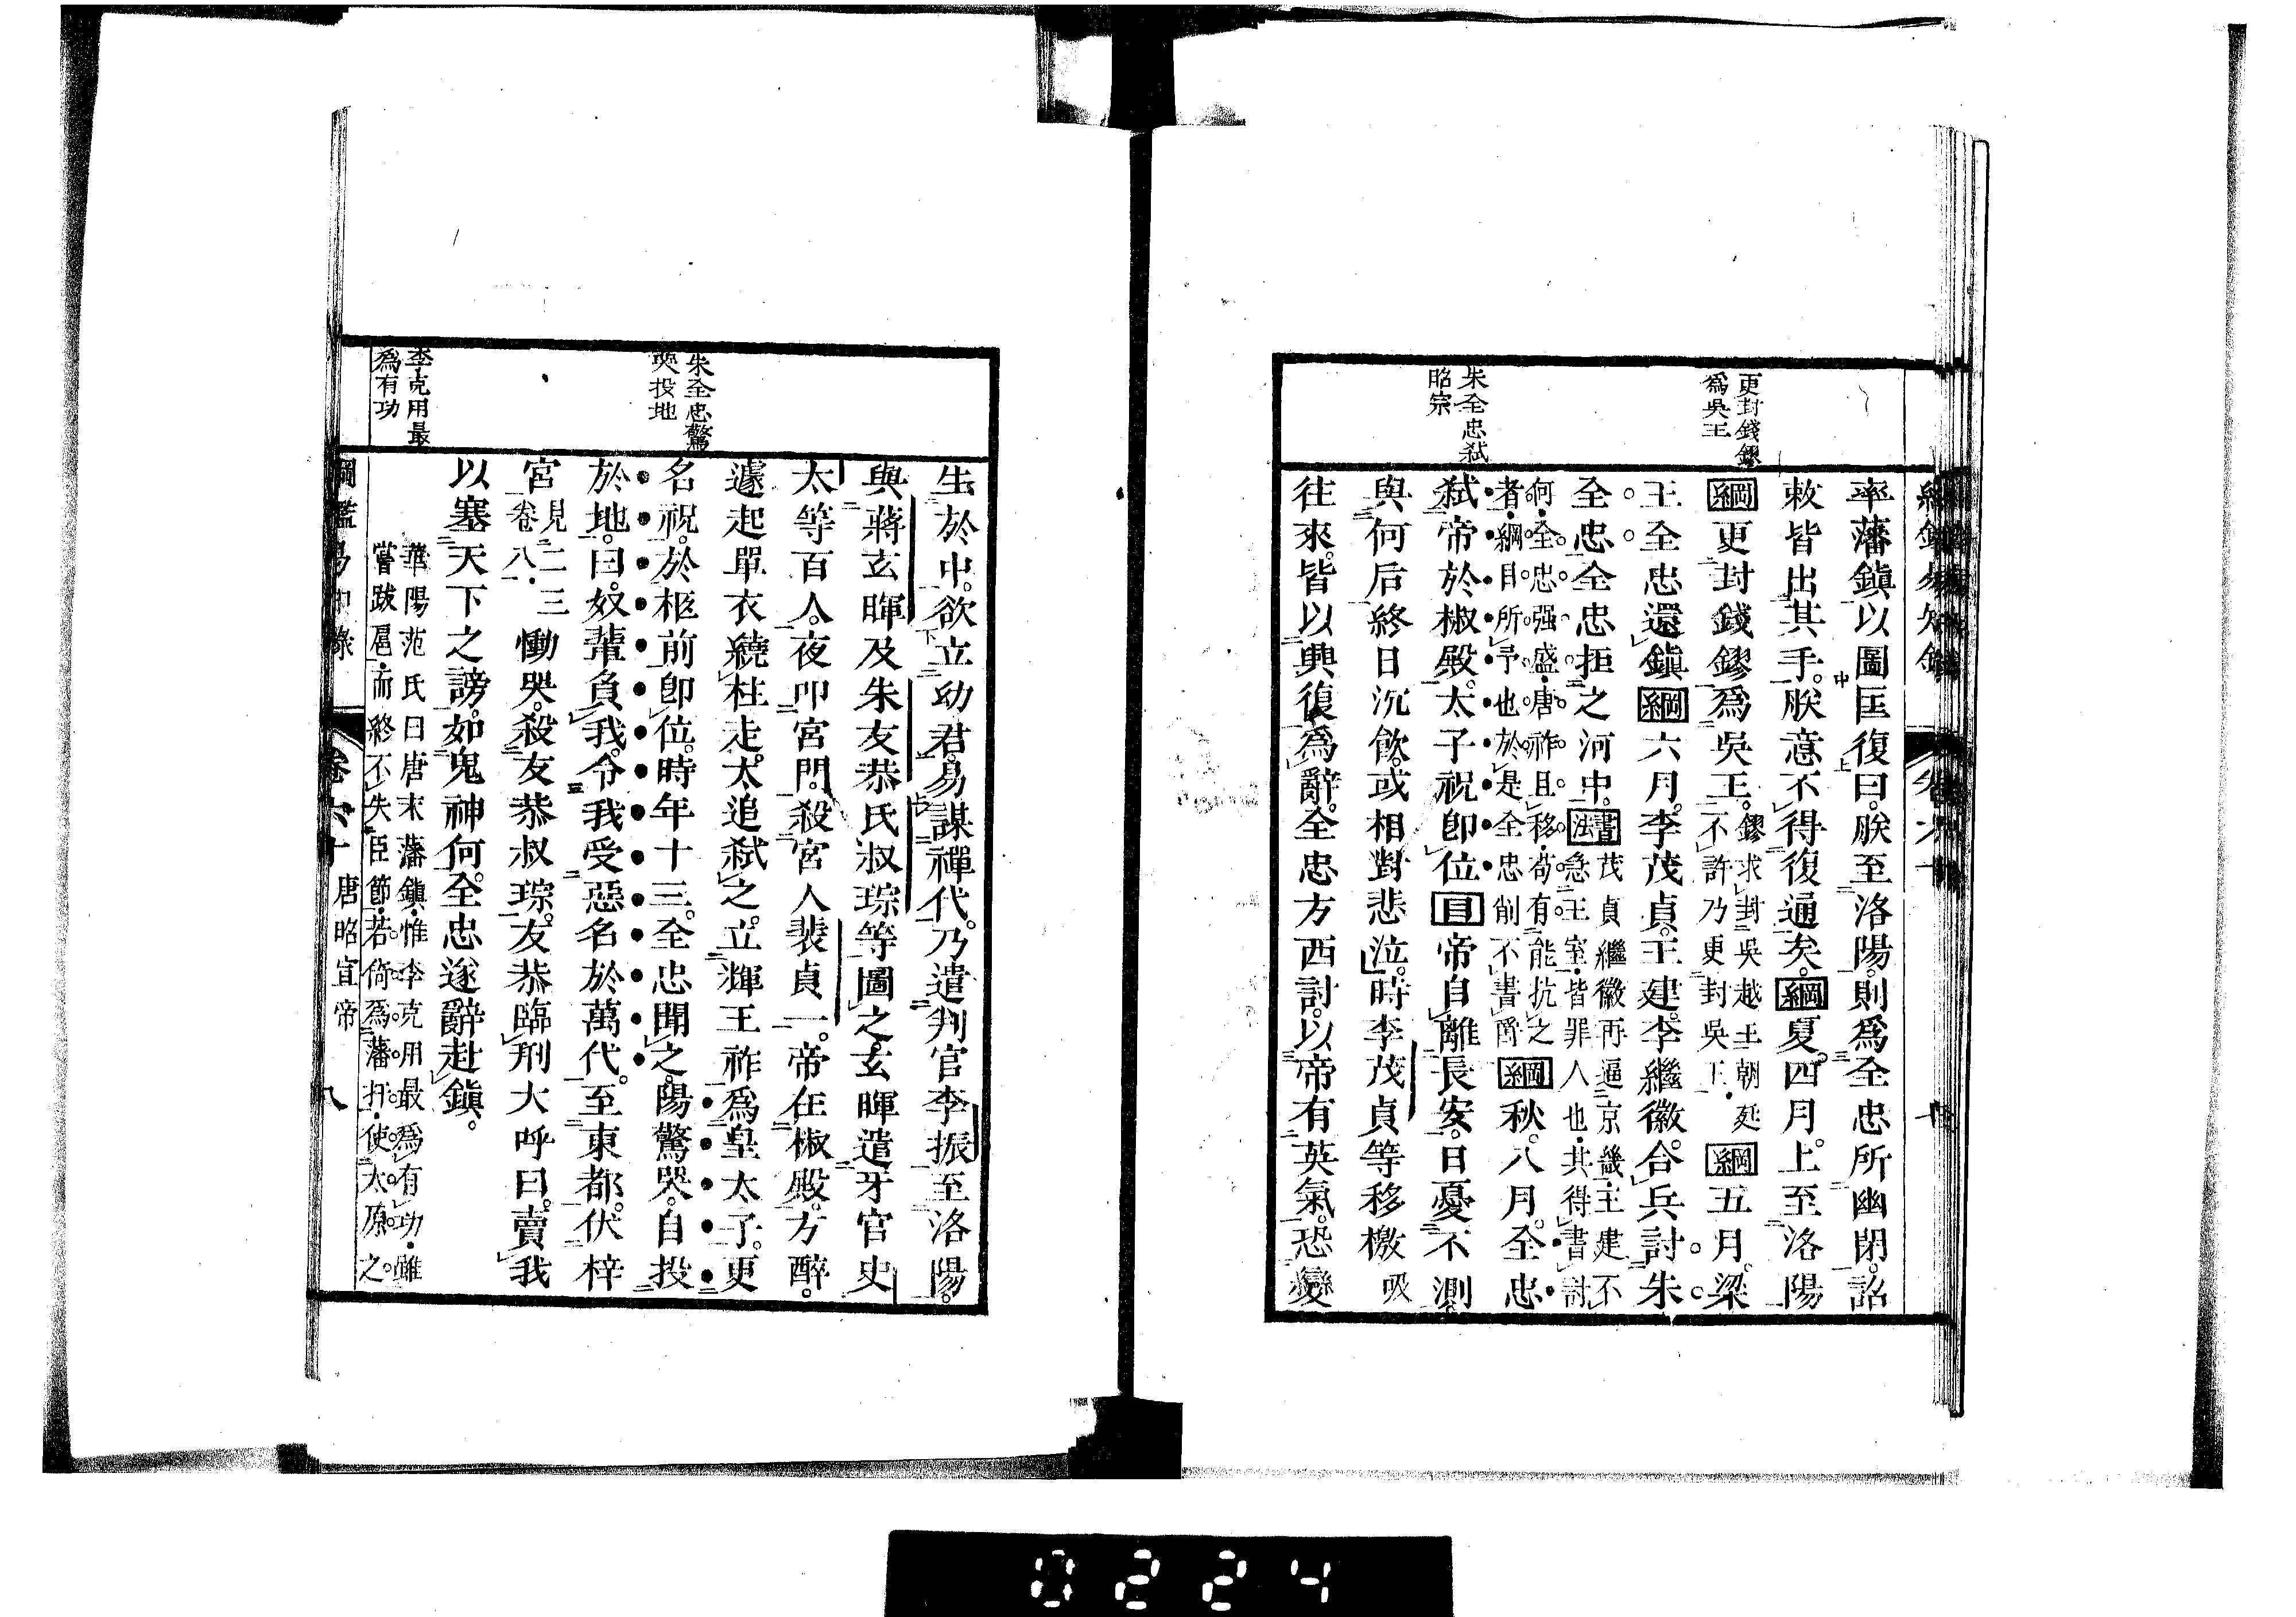 更封錢鏐
爲吳王
朱全忠弑
昭宗
率藩鎭以圖匡復曰。朕至洛陽。則爲全忠所幽閉。詔
敕皆出其手。朕意不得復通矣。綱夏。四月。上至洛陽
綱更封錢鏐爲吳王。鏐求封吳越王朝廷
不許乃更封吳王。綱五月。梁
王全忠還鎭綱六月。李茂貞。王建。李繼徽。合兵討朱
全忠。全忠拒之河中。書法茂貞繼徽再逼京畿。王建不
急王室。皆罪人也。其得書討
何。全忠强盛。唐祚且移。苟有能抗之
者。綱目所予也。於是全忠削不書爵綱秋。八月。全忠
弑帝於椒殿。太子祝卽位目帝自離長安。日憂不測。
與何后終日沉飮。或相對悲泣。時李茂貞等移檄
往來。皆以興復爲辭。全忠方西討。以帝有英氣。恐變
朱全忠驚
哭投地
李克用最
爲有功
生於中。欲立幼君。易謀禪代。乃遣判官李振至洛陽。
與蔣玄暉及朱友恭氏叔琮等圖之。玄暉遣牙官史
太等百人。夜叩宮門。殺宮人裴貞一。帝在椒殿。方醉。
遽起單衣繞柱走。太追弑之。立輝王祚爲皇太子。更
名祝。於柩前卽位。時年十三。全忠聞之。陽驚哭。自投
於地。曰。奴輩負我。令我受惡名於萬代。至東都。伏梓
宮見二三
卷八慟哭。殺友恭叔琮。友恭臨刑大呼曰。賣我
以塞天下之謗。如鬼神何。全忠遂辭赴鎭。
華陽范氏曰唐末藩鎭。惟李克用最爲有功。雖
嘗跋扈。而終不失臣節。若倚爲藩扞。使太原之
綱鑑易知錄 卷六十 唐昭宣帝 八